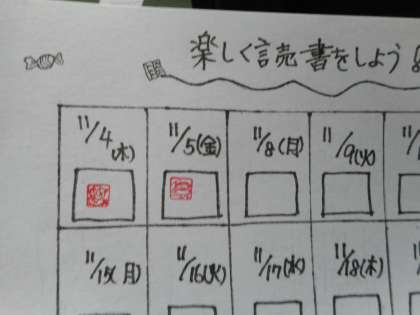 楽しく読書をしよう
11/4(木) 11/5(金) 11/8(月) 11/9(火)
11/15(月) 11/16(火) 11/17(水) 11/18(木)